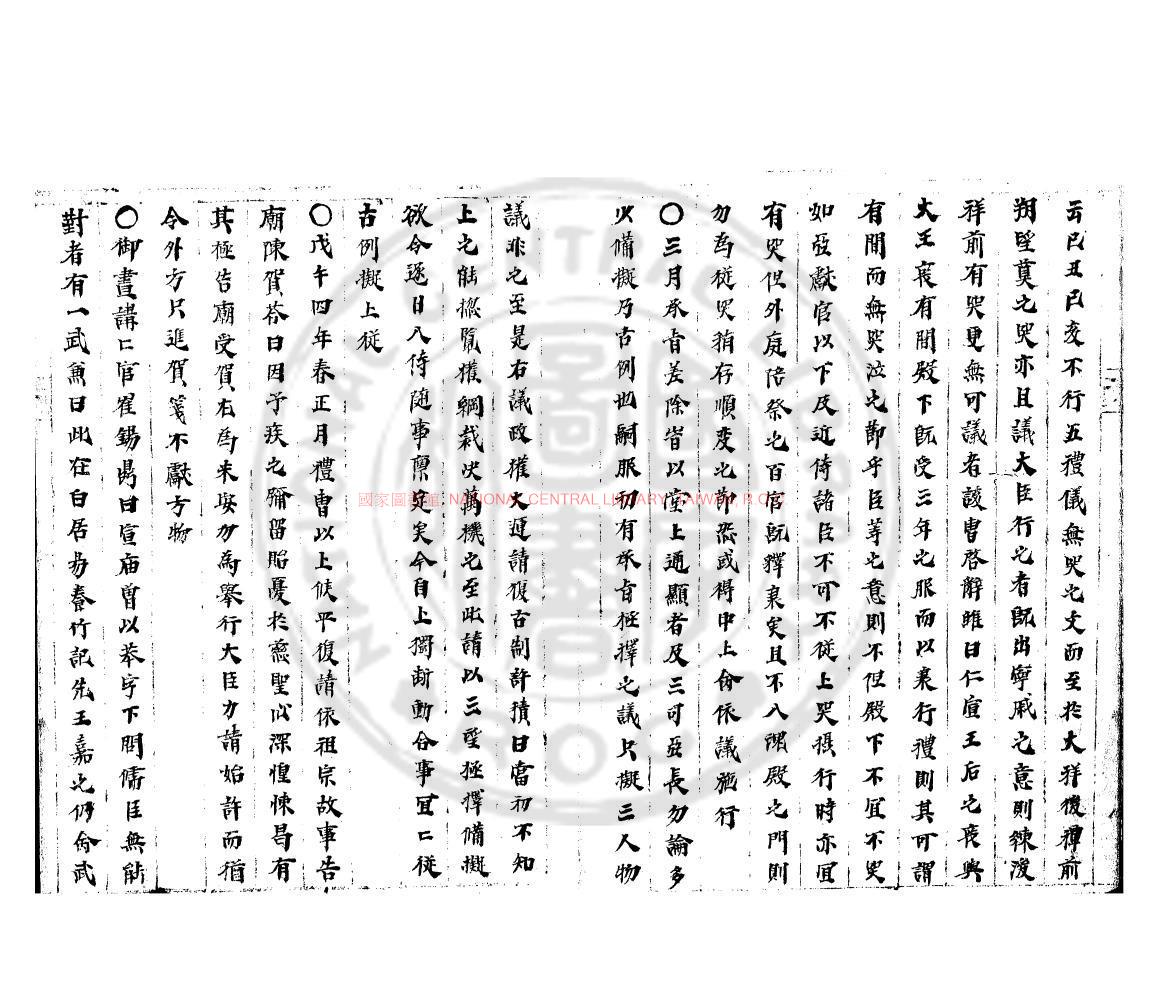 云己丑己亥不行五禮儀無哭之文而至於大祥後禫前
朔望奠之哭亦且議大臣行之者旣出寧戚之意則練後
祥前有哭更無可議者該曺啓辭雖曰仁宣王后之喪與
大王喪有間殿下旣受三年之服而以衰行禮則其可謂
有間而無哭泣之節乎臣等之意則不但殿下不宜不哭
如亞獻官以下及近侍諸臣不可不從上哭攝行時亦宜
有哭但外庭陪祭之百官旣釋衰矣且不入魂殿之門則
勿爲從哭稍存順变之節恐或得中上命依議施行
〇三月承旨差除皆以堂上通顯者及三司亞長勿論多
少備擬乃古例也嗣服初有承旨極擇之議只擬三人物
議非之至是右議政權大運請復古制許積曰當初不知
上之能摠覽權綱裁决萬機之至此請以三望極擇備擬
欲今逐日入侍隨事稟定矣今自上獨斷動合事宜二從
古例擬上從
〇戊午四年春正月禮曺以上候平復請依祖宗故事告
廟陳賀荅曰因予疾之彌留貽憂於慈聖心深惶悚曷有
其極告廟受賀在爲未安勿爲擧行大臣力請始許而猶
令外方只進賀箋不獻方物
〇御晝講二官崔錫鼎曰宣庙曾以苯字下問儒臣無能
對者有一武魚曰此在白居易養竹記先王嘉之仍命武
國家圖書館 NATIONAL CENTRAL LIBRARY, TAIWAN, R.O.C.